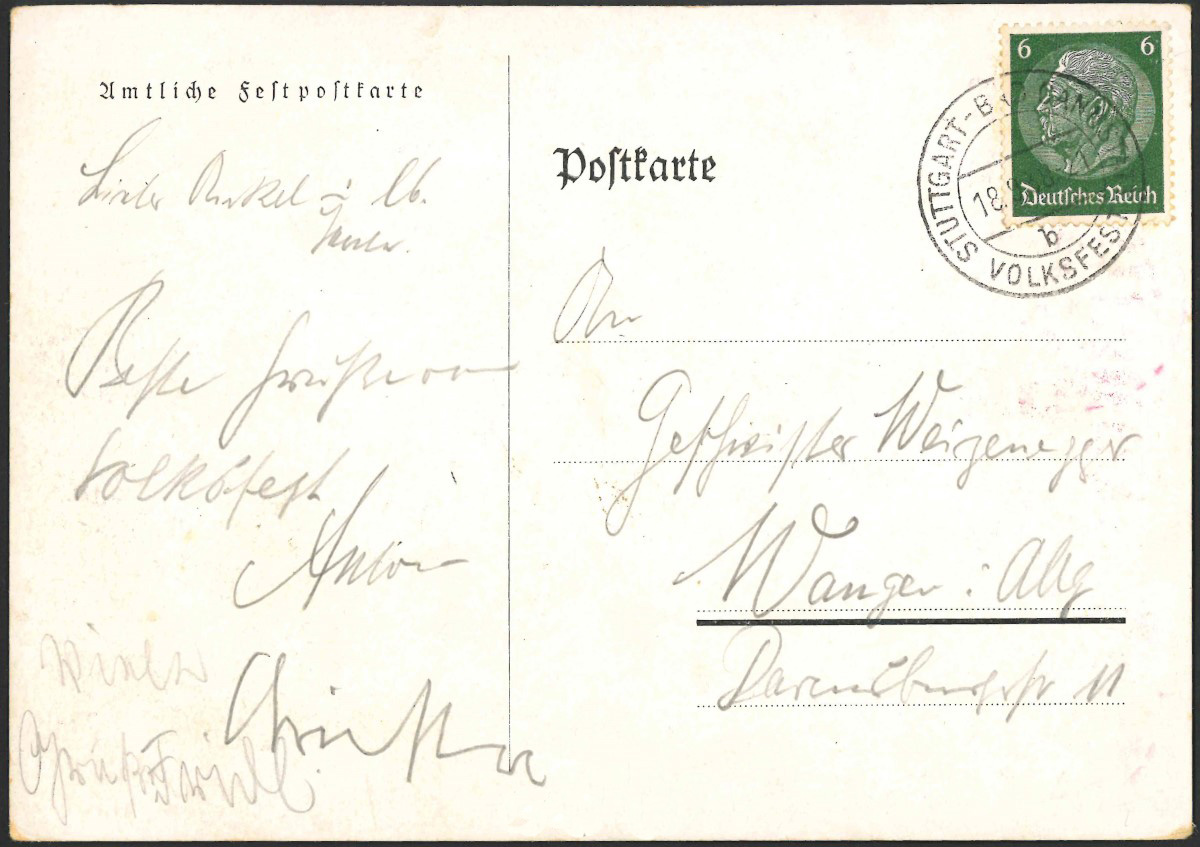 Amtliche Festpostkarte
Lieber Onkel u. lb.
Tante.
Beste Grüße vom
Volksfest
Anton
Viele
Grüße
Postkarte
6 6
Deutsches Reich
STUTTGART-BAD CANNST
18.9
b
VOLKSFEST
An
Geschwister Weizenegger
Wangen i. Allg
Ravensburgstr 11